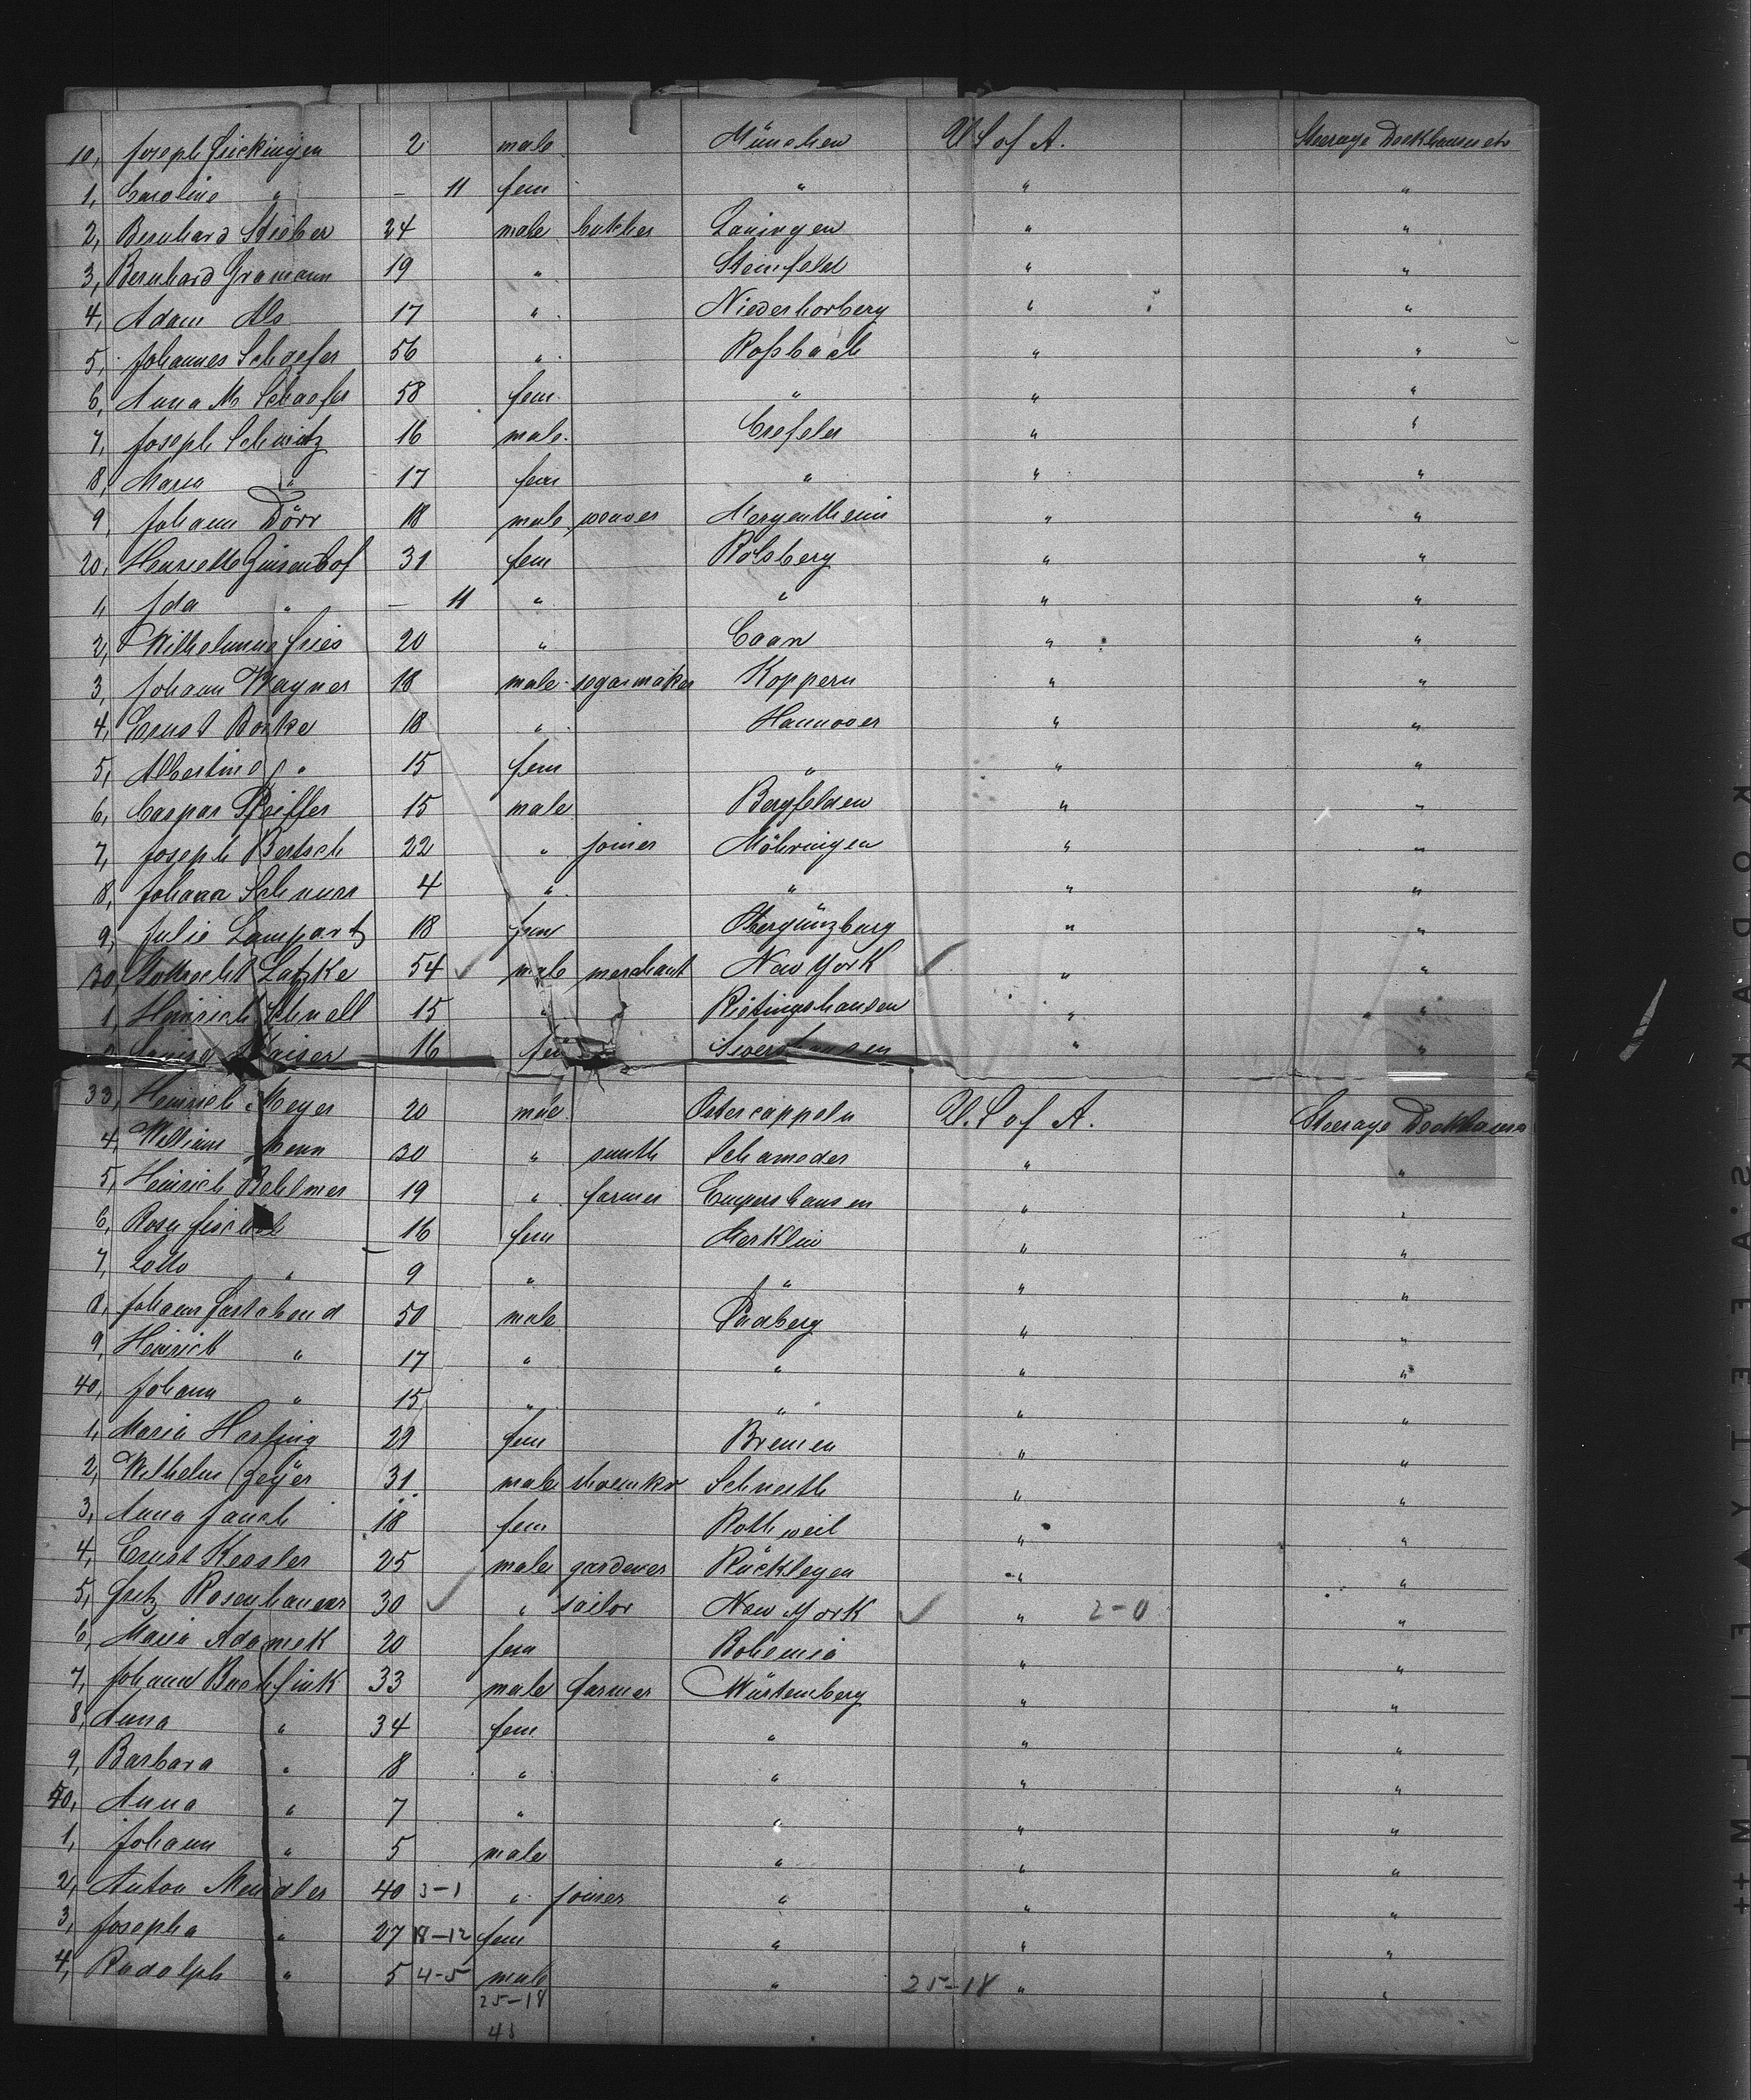 10, Joseph Frickingen 2 male München U. S of A. Steerage Deckhouse etc
1, Caroline " — 11 fem " " "
2, Bernhard Stieber 24 male butcher Lauingen " "
3, Bernhard Gramann 19 " Steinfeld " "
4, Adam Alo 17 " Niederhorberg " "
5, Johannes Schaefer 56 " Roßbach " "
6, Anna M Schaefer 58 fem " " "
7, Joseph Schmitz 16 male Crefeld " "
8, Maria " 17 fem " " "
9, Johann Dörr 18 male weaver Mergentheim " "
20, Henriette 31 fem Rolsberg " "
1, Ida " — 11 " " " "
2, Wilhelmine Fries 20 " Caan " "
3, Johann Wagner 18 male segarmaker Koppern " "
4, Ernst Borke 18 " Hannover " "
5, Albertine " 15 fem " " "
6, Caspar Pfeiffer 15 male Bergfelden " "
7, Joseph Bertsch 22 " joiner Möhringen " "
8, Johann Schnurr 4 " " " "
9, Julie Lampart 18 fem Obergünzburg " "
30, Gottocht Latzke 54 male merchant New York " "
1, Heinrich Schnell 15 " Rietingshausen " "
2, Louisa Kaiser 16 fem " "
33, Heinrich Meyer 20 male Ostercappeln U. S of A. Steerage Deckhouse
4, William Menn 30 " smith Schameder " "
5, Heinrich Behlmer 19 " farmer Empershausen " "
6, Rosy Fischel 16 fem Merklin " "
7, Lotto " 9 " " " "
8, Johann Fastabend 50 male Padberg " "
9, Heinrich " 17 " " " "
40, Johann " 15 " " " "
1, Maria Harling 29 fem Bremen " "
2, Wilhelm Geÿer 31 male shoemkr Schwerth " "
3, Anna Jauch 18 fem Rothweil " "
4, Ernst Kessler 25 male gardener Rücklegen " "
5, Fritz Rosenhauer 30 " sailor New York " 2-0 "
6, Maria Adamek 20 fem Bohemia " "
7, Johann Buchfink 33 male farmer Würtemberg " "
8, Anna " 34 fem " " "
9, Barbara " 8 " " " "
50, Anna " 7 " " " "
1, Johann " 5 male " " "
2, Anton Mendler 40 3-1 " joiner " " "
3, Josepha " 27 18-12 fem " " "
4, Rudolph " 5 4-5 male " 25-18 " "
25-18
43
KODAK S.A.F.E.T.Y FILM